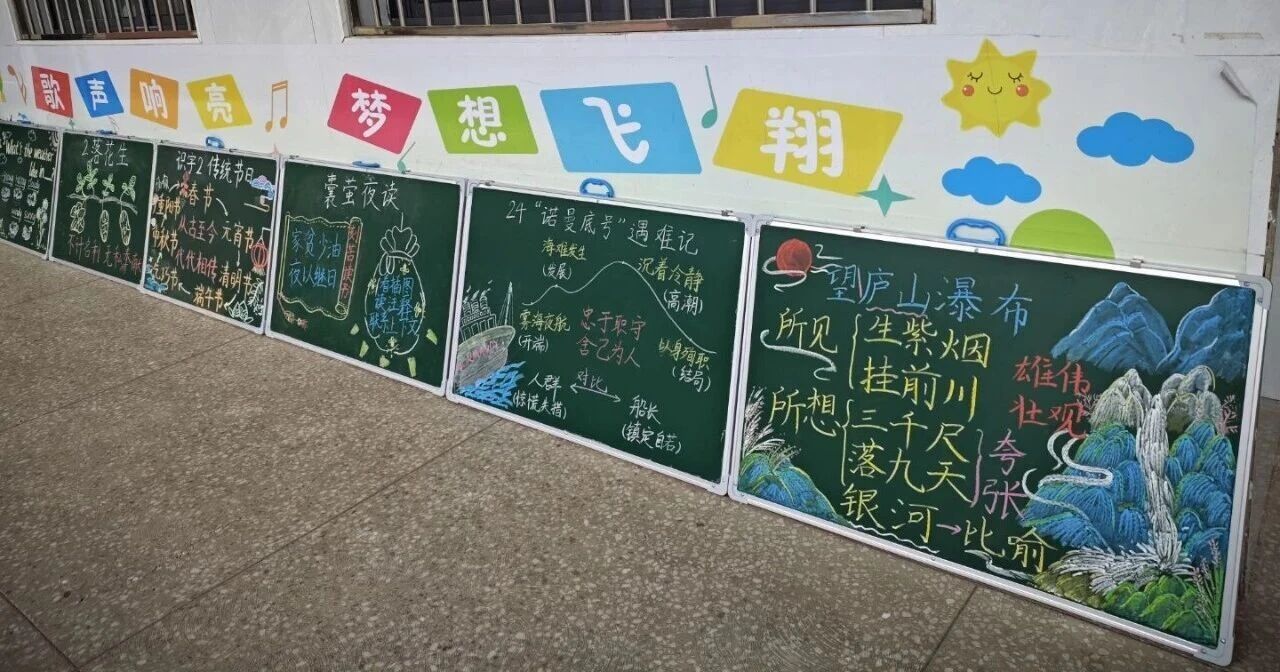 歌声响亮
梦想飞翔
What's the weather
like
落花生
识字2 传统节日
春节
元宵节
清明节
端午节
从古至今
代代相传
囊萤夜读
家贫少油
夜以继日
24 “诺曼底号”遇难记
海难发生
(发展)
沉着冷静
(高潮)
雾海夜航
(开端)
忠于职守
舍己为人
以身殉职
(结局)
人群
对比
船长
(惊慌失措)
(镇定自若)
望庐山瀑布
所见
生紫烟
挂前川
所想
三千尺
落九天
夸张
银河→比喻
雄伟
壮观